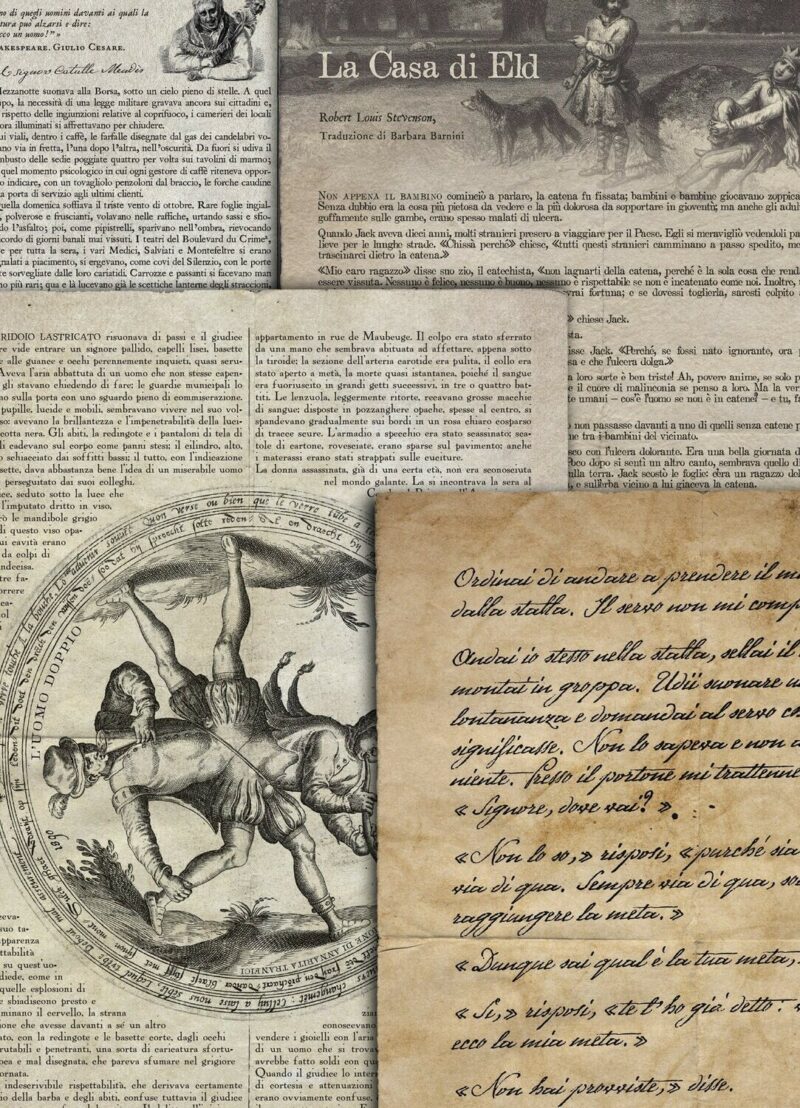 no di quegli uomini davanti ai quali la
tura può alzarsi e dire:
cco un uomo!"»
AKESPEARE. GIULIO CESARE.
l signor Catulle Mendès
ezzanotte suonava alla Borsa, sotto un cielo pieno di stelle. A quel
po, la necessità di una legge militare gravava ancora sui cittadini e,
rispetto delle ingiunzioni relative al coprifuoco, i camerieri dei locali
ora illuminati si affrettavano per chiudere.
ui viali, dentro i caffè, le farfalle disegnate dal gas dei candelabri vo-
ano via in fretta, l'una dopo l'altra, nell'oscurità. Da fuori si udiva il
mbusto delle sedie poggiate quattro per volta sui tavolini di marmo;
quel momento psicologico in cui ogni gestore di caffè riteneva oppor-
o indicare, con un tovagliolo penzoloni dal braccio, le forche caudine
a porta di servizio agli ultimi clienti.
uella domenica soffiava il triste vento di ottobre. Rare foglie ingial-
, polverose e fruscianti, volavano nelle raffiche, urtando sassi e sfio-
do l'asfalto; poi, come pipistrelli, sparivano nell'ombra, rievocando
icordo di giorni banali mai vissuti. I teatri del Boulevard du Crime,
e per tutta la sera, i vari Medici, Salviati e Montefeltre si erano
gnalati a piacimento, si ergevano, come covi del Silenzio, con le porte
te sorvegliate dalle loro cariatidi. Carrozze e passanti si facevano man
più rari; qua e là lucevano già le scettiche lanterne degli straccioni,
La Casa di Eld
Robert Louis Stevenson,
Traduzione di Barbara Barnini
Non appena il bambino cominciò a parlare, la catena fu fissata; bambini e bambine giocavano zoppica
Senza dubbio era la cosa più pietosa da vedere e la più dolorosa da sopportare in gioventù; ma anche gli adul
goffamente sulle gambe, erano spesso malati di ulcera.
Quando Jack aveva dieci anni, molti stranieri presero a viaggiare per il Paese. Egli si meravigliò vedendoli pa
lieve per le lunghe strade. «Chissà perché» chiese, «tutti questi stranieri camminano a passo spedito, me
trascinarci dietro la catena.»
«Mio caro ragazzo» disse suo zio, il catechista, «non lagnarti della catena, perché è la sola cosa che rend
essere vissuta. Nessuno è felice, nessuno è buono, nessuno è rispettabile se non è incatenato come noi. Inoltre,
vrai fortuna; e se dovessi toglierla, saresti colpito
» chiese Jack.
sta.
isse Jack. «Perché, se fossi nato ignorante, ora
a e che l'ulcera dolga.»
a loro sorte è ben triste! Ah, povere anime, se solo p
e il cuore di malinconia se penso a loro. Ma la ver
te umani – cos'è l'uomo se non è in catene? – e tu, fa
o non passasse davanti a uno di quelli senza catene p
ne tra i bambini del vicinato.
sco con l'ulcera dolorante. Era una bella giornata d
Poco dopo si sentì un altro canto, sembrava quello di
lla terra. Jack scostò le foglie: c'era un ragazzo del
, e sull'erba vicino a lui giaceva la catena.
RIDOIO LASTRICATO risuonava di passi e il giudice
re vide entrare un signor pallido, capelli lisci, basette
alle guance e occhi perennemente inquieti, quasi seru-
Aveva l'aria abbattuta di un uomo che non smesse capen-
gli stavano chiedendo di fare; le guardie municipali lo
no sulla porta con uno sguardo pieno di commiserazione.
pupille, lucide e mobili, sembravano vivere nel suo vol-
so: avevano la brillantezza e l'impenetrabilità della luci-
cotta nera. Gli abiti, la redingote e i pantaloni di tela di
cadevano sul corpo come panni stesi; il cilindro, alto,
schiacciato dai soffitti bassi; il tutto, con l'indicazione
sette, dava abbastanza bene l'idea di un miserabile uomo
perseguitato dai suoi colleghi.
ice, seduto sotto la luce che
l'imputato dritto in viso,
rò le mandibole grigio
di questo viso opa-
ui cavità erano
da colpi di
ndecisa.
tre fa-
orrere
ea-
ol
appartamento in rue de Maubeuge. Il colpo era stato sferrato
da una mano che sembrava abituata ad affettare, appena sotto
la tiroide; la sezione dell'arteria carotide era pulita, il collo era
stato aperto a metà, la morte quasi istantanea, poiché il sangue
era fuoriuscito in grandi getti successivi, in tre o quattro bat-
titi. Le lenzuola, leggermente ritorte, recavano grosse macchie
di sangue; disposte in pozzanghere opache, spesse al centro, si
spandevano gradualmente sui bordi in un rosa chiaro cosparso
di tracce scure. L'armadio a specchio era stato scassinato; sca-
tole di cartone, rovesciate, erano sparse sul pavimento; anche
i materassi erano stati strappati sulle cuciture.
La donna assassinata, già di una certa età, non era sconosciuta
nel mondo galante. La si incontrava la sera al
L'UOMO DOPPIO
1890
IONE DI ANNARITA TRANFICI
eva-
suo ta-
apparenza
ttabilità
su quest'uo-
diede, come in
quelle esplosioni di
e sbadiscono presto e
minano il cervello, la strana
zione che avesse davanti a sé un altro
ato, con la redingote e le basette corte, dagli occhi
rutabili e penetranti, una sorta di caricatura sfortu-
oca e mal disegnata, che pareva sfumare nel grigiore
ornata.
indescrivibile rispettabilità, che derivava certamente
glio della barba e degli abiti, confuse tuttavia il giudice
zia
conoscevano
vendere i gioielli con l'aria
di un uomo che si trova
avrebbe fatto soldi con qu
Quando il giudice lo inter
di cortesia e attenuazioni
Ordinai di andare a prendere il m
dalla stalla. Il servo non mi comp
Andai io stesso nella stalla, sellai il
montai in groppa. Udii suonare u
lontananza e domandai al servo ch
significasse. Non lo sapeva e non a
niente. Presso il portone mi trattenne
«Signore, dove vai?».
«Non lo so,» risposi, «purché sia
via di qua. Sempre via di qua, so
raggiungere la meta.»
«Dunque sai qual è la tua meta,
«Sì,» risposi, «te l'ho già detto:
ecco la mia meta.»
«Non hai provviste,» disse.